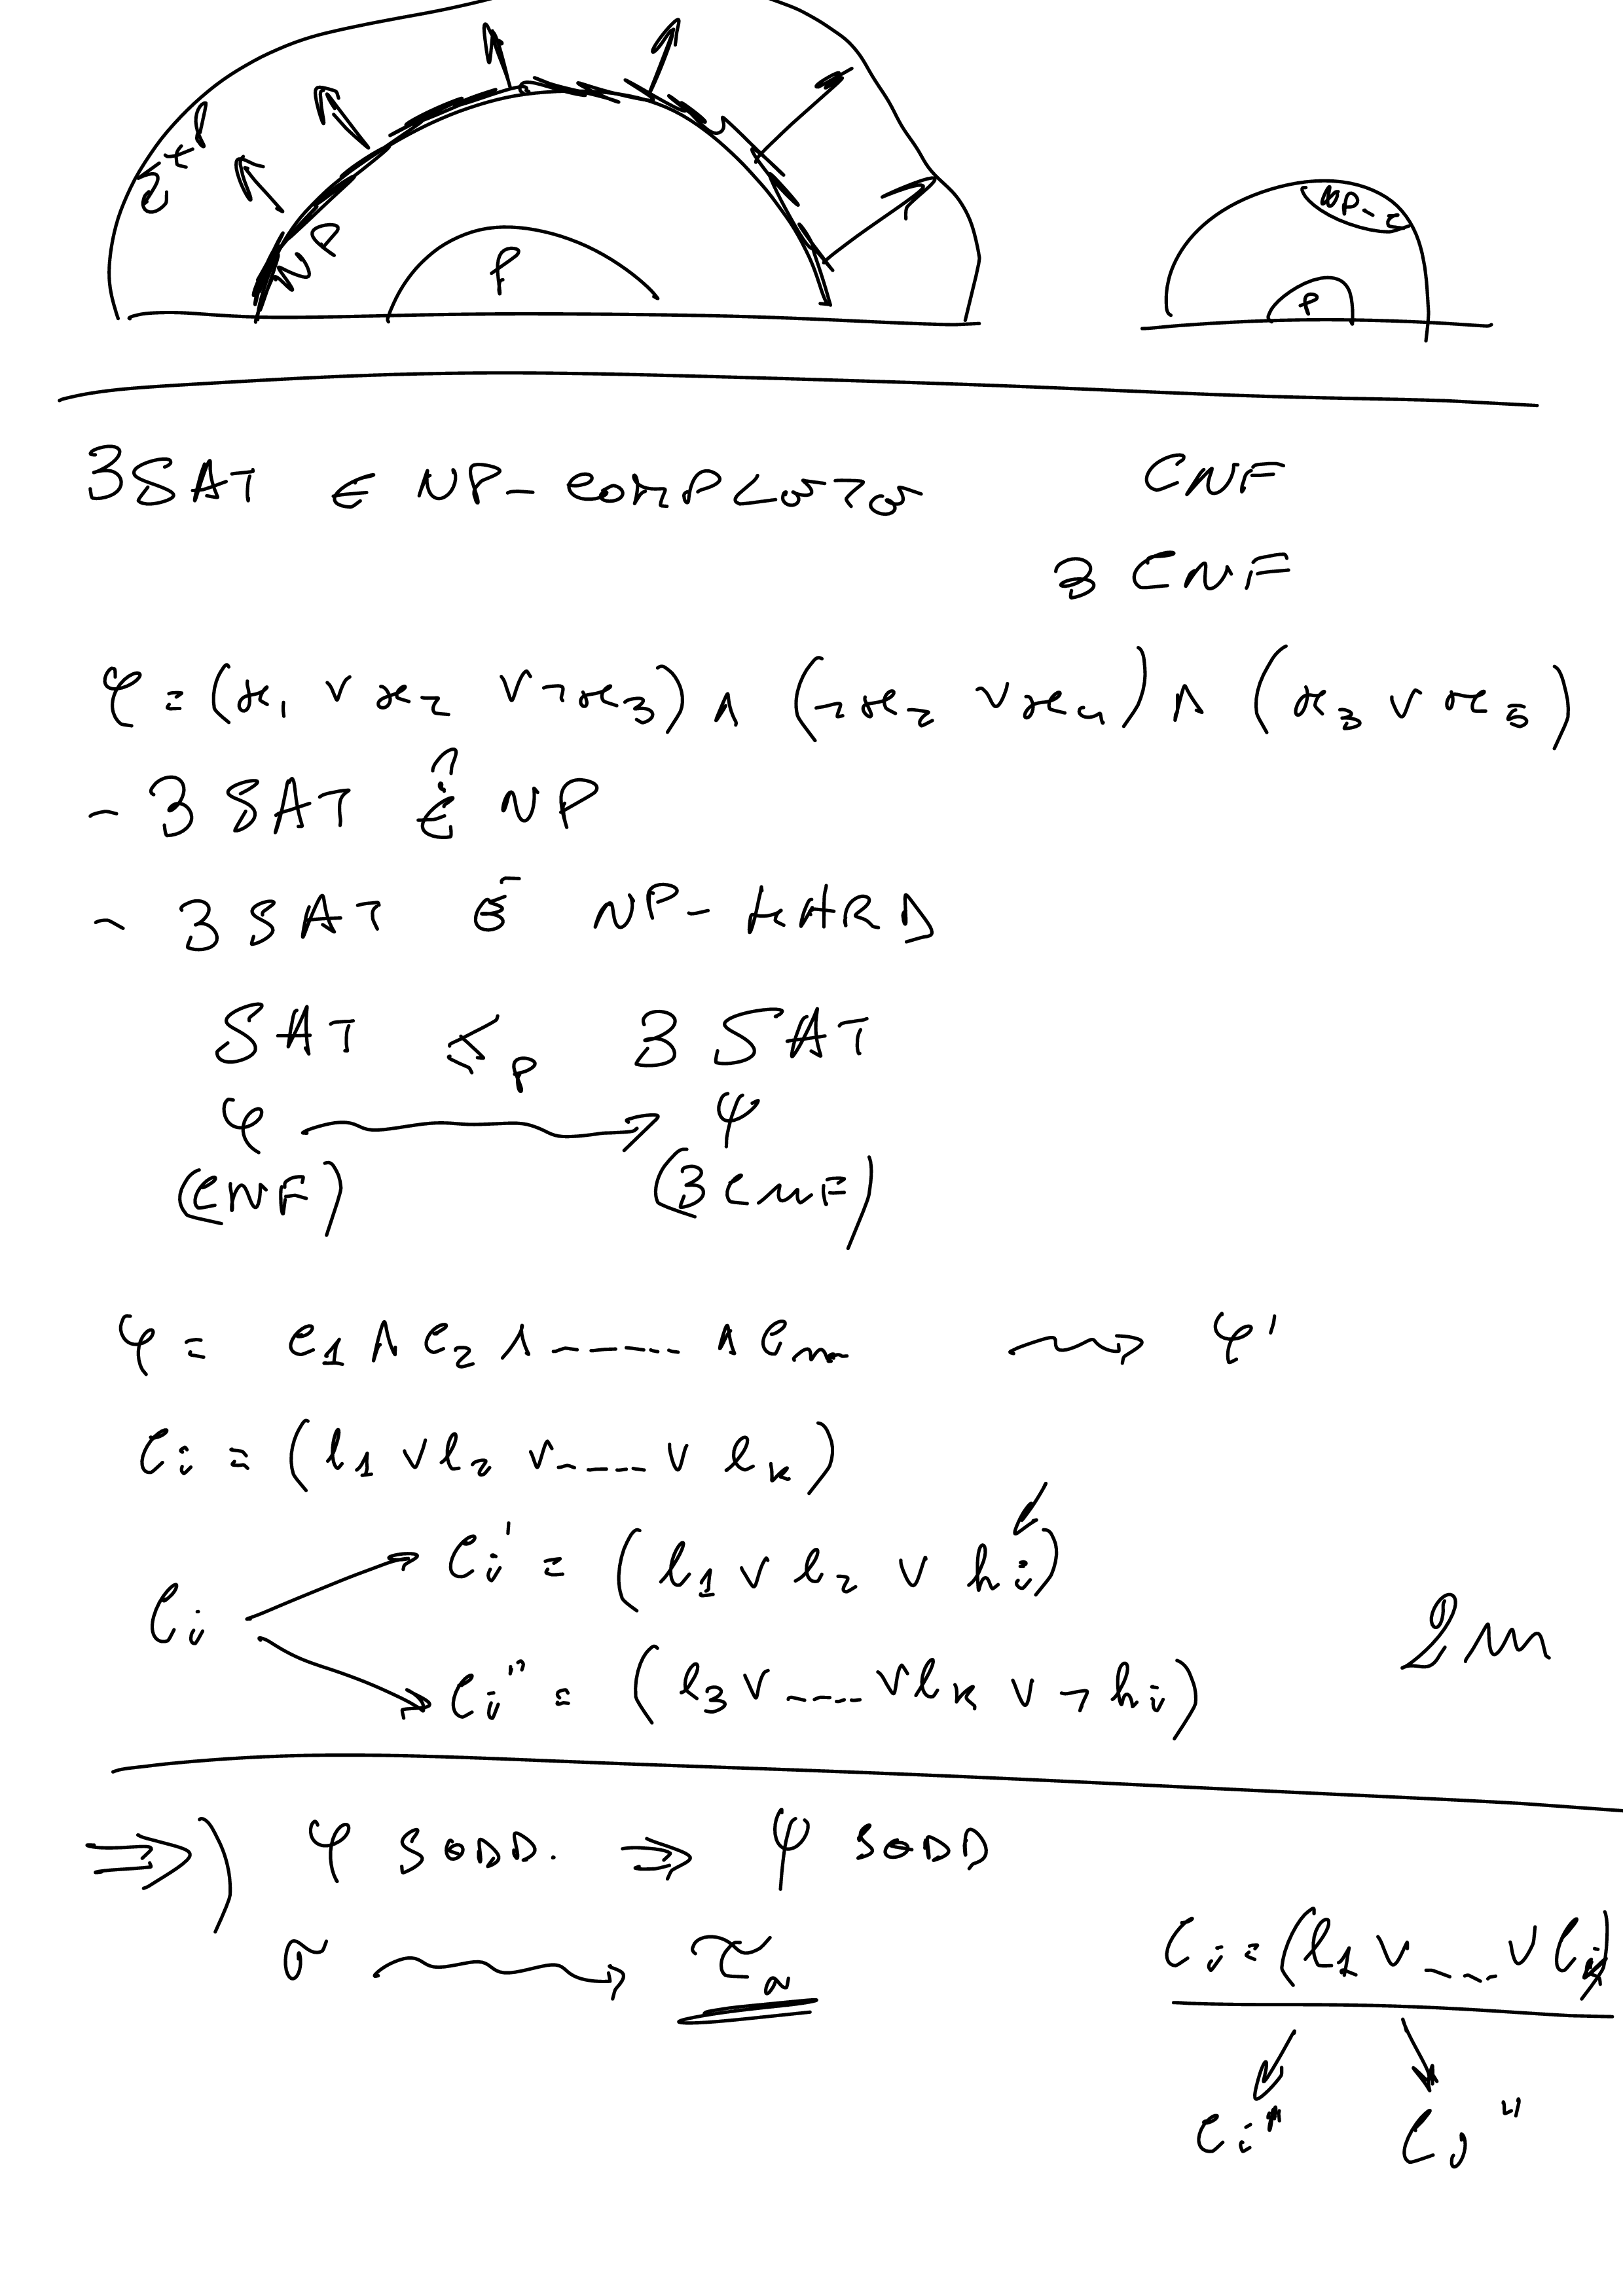 NP
P
NP-C
P
3SAT ∈ NP-COMPLETO
CNF
3CNF
φ = (x₁ ∨ x₂ ∨ ¬x₃) ∧ (¬x₂ ∨ x₄) ∧ (x₃ ∨ x₅)
- 3SAT ∈? NP
- 3SAT È NP-HARD
SAT ≤p 3SAT
φ → ψ
(CNF) (3CNF)
φ = C₁ ∧ C₂ ∧ ------ ∧ Cₘ → φ'
Cᵢ = (l₁ ∨ l₂ ∨ ----- ∨ lₖ)
Cᵢ' = (l₁ ∨ l₂ ∨ hᵢ)
Cᵢ
2m
Cᵢ'' = (l₃ ∨ ---- ∨ lₖ ∨ ¬hᵢ)
⇒) φ SODD. ⇒ ψ SODD
σ → τₙ
Cᵢ = (l₁ ∨ ---- ∨ lₖ)